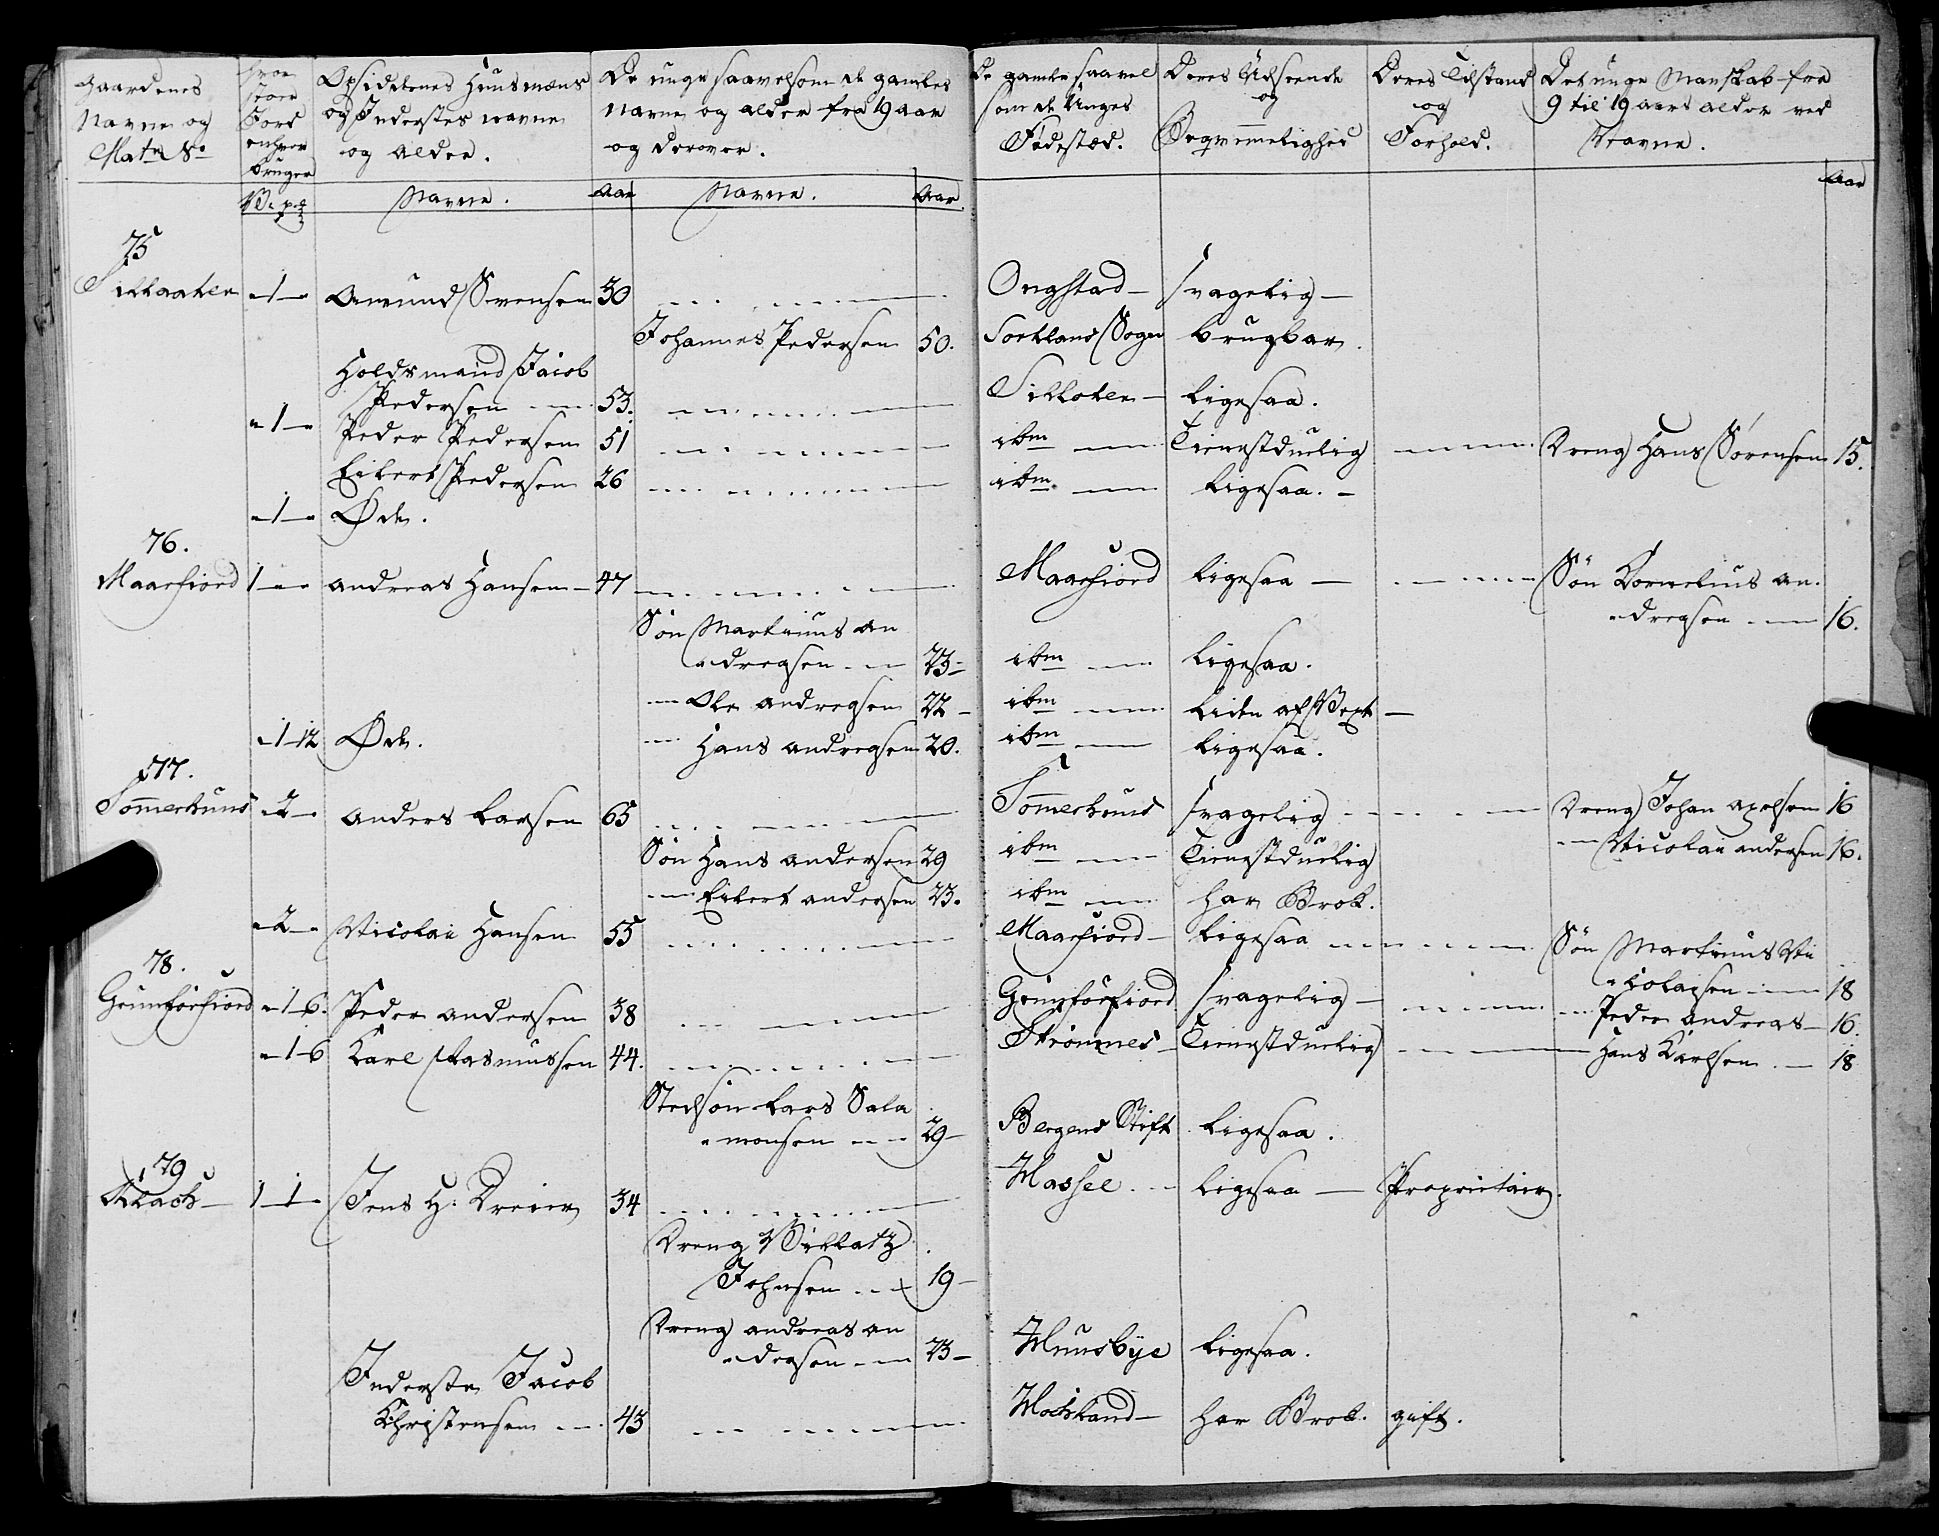 Gaardenes Navne og Matr. No.
hvor stor Jord enhver bruger
Opsidernes Huusmæns og Inderstes navne og alder.
De unge saavelsom de gamles navne og alder fra 19 aar og derover.
De gamle saavel som de Unges Fødested.
Deres Udseende og Beqvemmelighed
Deres Tilstand og Forhold.
Det unge Manskab fra 9 til 19 aars alder ved Navne.
Navne. Aar Navne. Aar. Aar
75
" 1 " Amund Svensen 30 Ongstad svagelig
Johannes Pedersen 50. Sogn brugbar
Holdsmand Jacob
Pedersen 53. ligesaa.
" 1 " Peder Pedersen 51 ibm Tienestduelig Dreng Hans Sørensen 15.
Eilert Pedersen 26 ibm. ligesaa.
" 1 " Øde.
76.
Maarfiord 1 " " Andreas Hansen 47 Maarfiord ligesaa Søn Cornelius An
"dreasen 16.
Søn Martinus An
"dreasen 23 ibm ligesaa.
Ole Andreasen 22 ibm liden af Vext
" 1 12 Øde. Hans Andreasen 20. ibm ligesaa.
77.
Sommerhuus " 2 " Anders Larsen 65 Sommerhuus svagelig Dreng Johan Axelsen 16
Søn Hans Andersen 29 ibm Tienestduelig Nicolai Andersen 16.
Eilert Andersen 23. ibm har Brok.
" 2 " Nicolai Hansen 55 Maarfiord ligesaa Søn Martinus Ni
"colaisen 18
78.
Grundførfiord " 1 6. Peder Andersen 38 Grundførfiord svagelig Peder Andreas 16.
" 1 6 Carl Rasmussen 44. Strømnes Tienestduelig Hans Carlsen 18
Stedsøn Lars Sala
"monsen 29 Bergens Stift ligesaa.
79
1 1 " Jens H. Dreier 34 ligesaa Proprietair.
Dreng Villatz
Johnsen 19
Dreng Andreas An
"dersen 23 Huusbye ligesaa.
Inderste Jacob
Christensen 43 har Brok. gift.